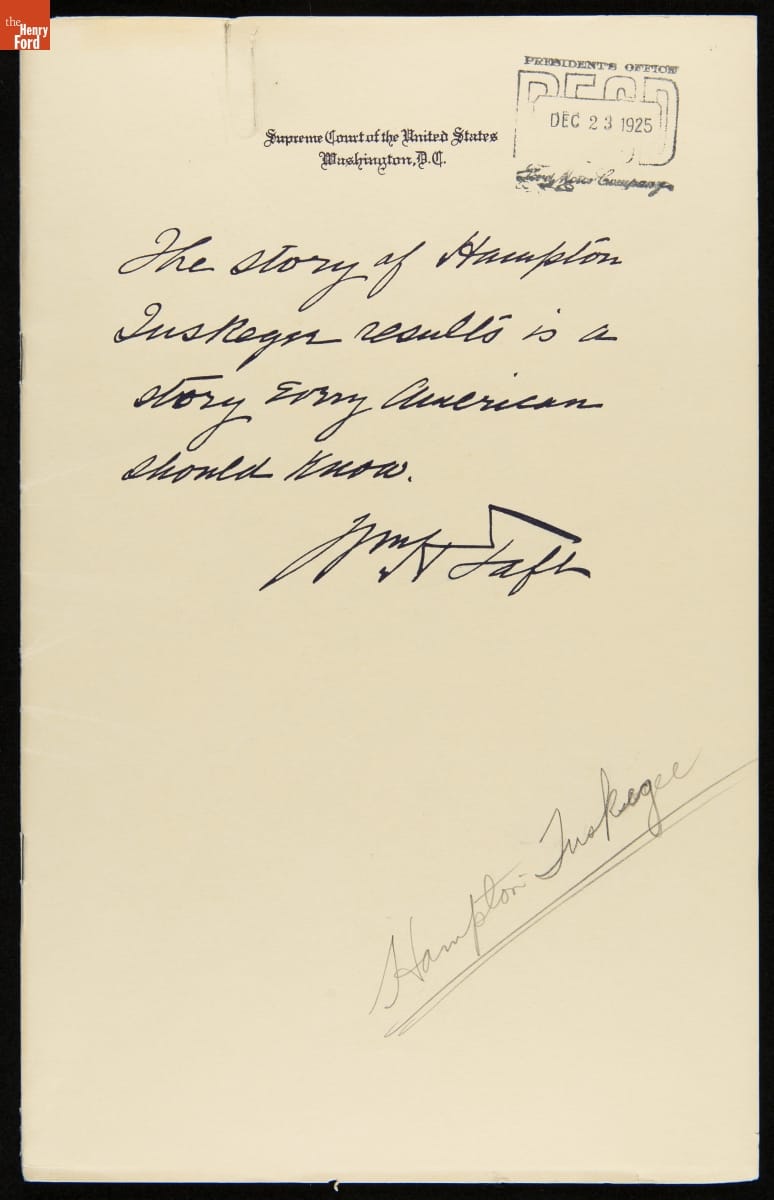 the
Henry
Ford
PRESIDENT'S OFFICE
REC'D
DEC 23 1925
Ford Motor Company
Supreme Court of the United States
Washington, D.C.
The story of Hampton
Tuskegee results is a
story every American
should know.
Wm H Taft
Hampton Tuskegee